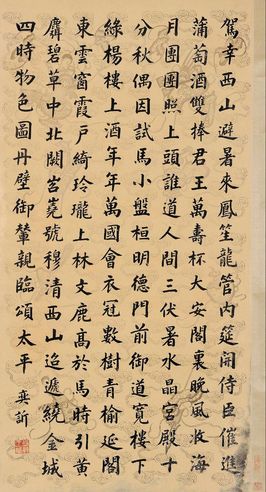 駕幸西山避暑來鳳笙龍管內筵開侍臣催進
蒲萄酒雙捧君王萬壽杯大安閣裏晚風收海
月團團照上頭誰道人間三伏暑水晶宮殿十
分秋偶因試馬小盤桓明德門前御道寬樓下
綠楊樓上酒年年萬國會衣冠數樹青榆延閣
東雲窗霞戶綺玲瓏上林文鹿高於馬時引黃
麛碧草中北闕岧嶤號穆清西山迢遞繞金城
四時物色圖丹壁御輦親臨頌太平 奕訢